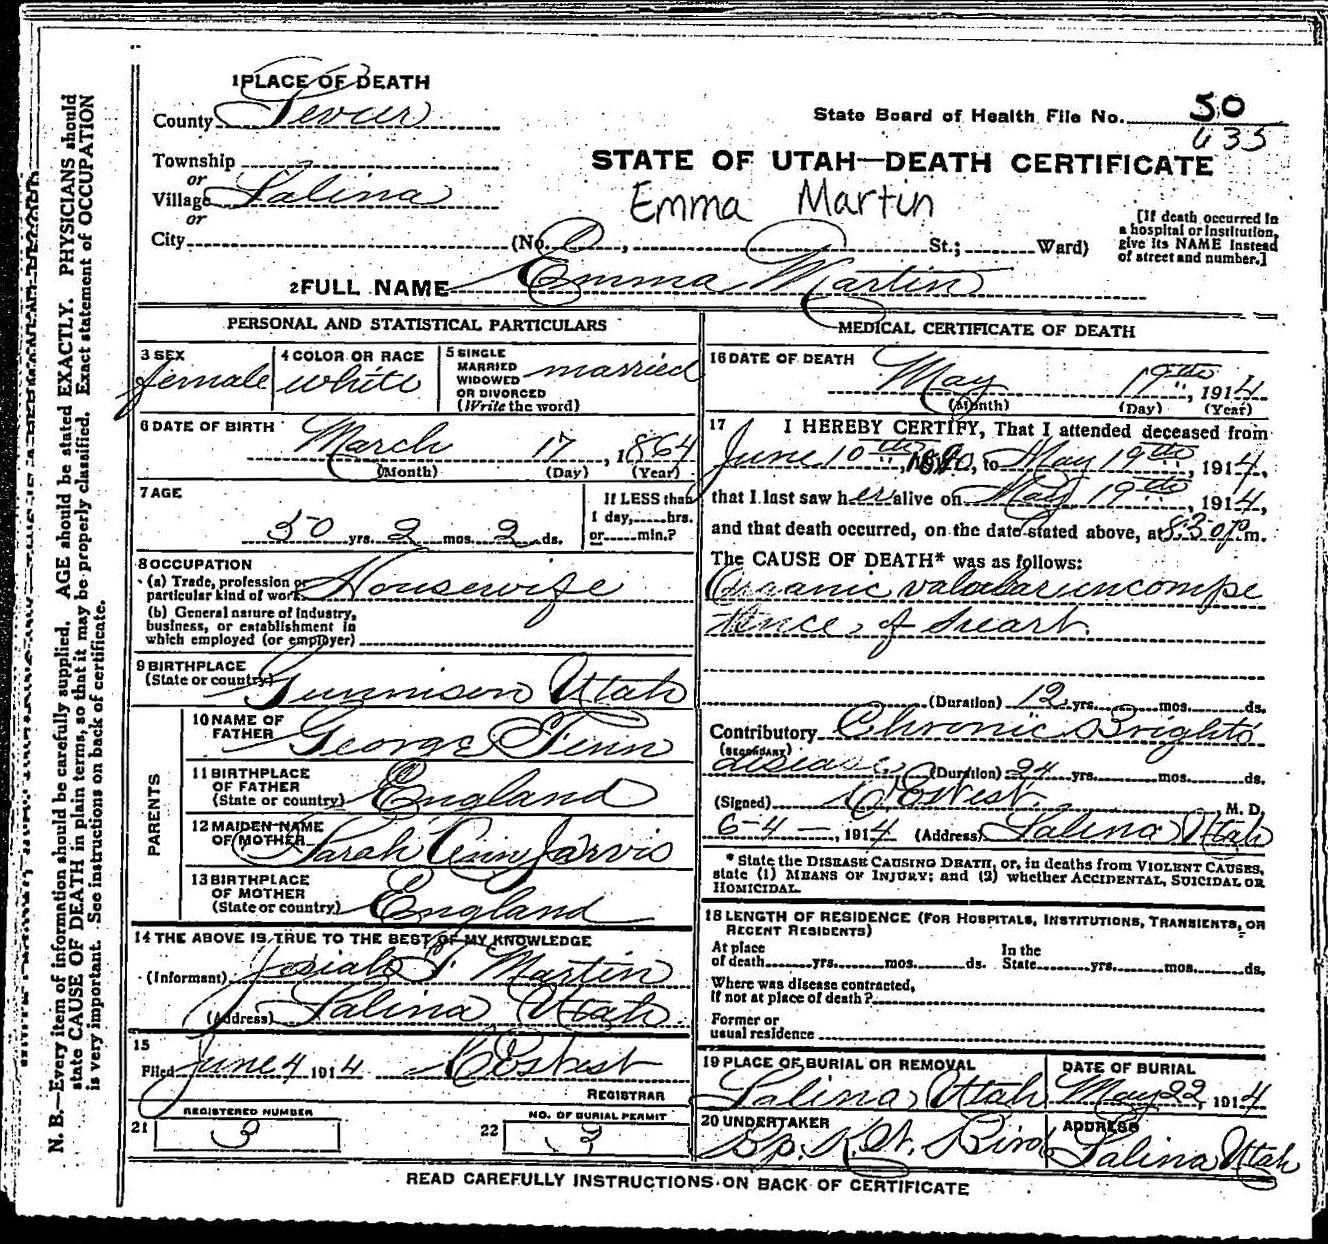 1 PLACE OF DEATH
County Sevier
State Board of Health File No. 50
635
Township
or
Village Salina
or
STATE OF UTAH—DEATH CERTIFICATE
Emma Martin
City (No. , St.; Ward)
[If death occurred in
a hospital or institution,
give its NAME instead
of street and number.]
2 FULL NAME Emma Martin
PERSONAL AND STATISTICAL PARTICULARS
3 SEX
female
4 COLOR OR RACE
white
5 SINGLE
MARRIED
WIDOWED
OR DIVORCED
(Write the word)
married
6 DATE OF BIRTH
March 17, 1864
(Month) (Day) (Year)
7 AGE
50 yrs. 2 mos. 2 ds.
If LESS than
1 day, hrs.
or min.?
8 OCCUPATION
(a) Trade, profession or
particular kind of work Housewife
(b) General nature of industry,
business, or establishment in
which employed (or employer)
9 BIRTHPLACE
(State or country) Gunnison Utah
PARENTS
10 NAME OF
FATHER George Fenn
11 BIRTHPLACE
OF FATHER
(State or country) England
12 MAIDEN NAME
OF MOTHER Sarah Ann Jarvis
13 BIRTHPLACE
OF MOTHER
(State or country) England
14 THE ABOVE IS TRUE TO THE BEST OF MY KNOWLEDGE
(Informant) Josiah F. Martin
(Address) Salina Utah
15
Filed June 4 1914
REGISTRAR
REGISTERED NUMBER
21 3
NO. OF BURIAL PERMIT
22 3
MEDICAL CERTIFICATE OF DEATH
16 DATE OF DEATH
May 19th, 1914
(Month) (Day) (Year)
17 I HEREBY CERTIFY, That I attended deceased from
June 10th, to May 19th, 1914,
that I last saw her alive on May 19th, 1914,
and that death occurred, on the date stated above, at 8:30 p m.
The CAUSE OF DEATH* was as follows:
Organic valvular incompe
tence of heart.
(Duration) 12 yrs. mos. ds.
Contributory Chronic Brights
(SECONDARY)
disease (Duration) 24 yrs. mos. ds.
(Signed) M. D.
6-4-, 1914 (Address) Salina Utah
* State the DISEASE CAUSING DEATH, or, in deaths from VIOLENT CAUSES,
state (1) MEANS OF INJURY; and (2) whether ACCIDENTAL, SUICIDAL OR
HOMICIDAL.
18 LENGTH OF RESIDENCE (FOR HOSPITALS, INSTITUTIONS, TRANSIENTS, OR
RECENT RESIDENTS)
At place
of death yrs. mos. ds.
In the
State yrs. mos. ds.
Where was disease contracted,
if not at place of death?
Former or
usual residence
19 PLACE OF BURIAL OR REMOVAL
Salina, Utah
DATE OF BURIAL
May 22, 1914
20 UNDERTAKER
Bp.
ADDRESS
Salina Utah
READ CAREFULLY INSTRUCTIONS ON BACK OF CERTIFICATE
N. B.—Every item of information should be carefully supplied. AGE should be stated EXACTLY. PHYSICIANS should
state CAUSE OF DEATH in plain terms, so that it may be properly classified. Exact statement of OCCUPATION
is very important. See instructions on back of certificate.